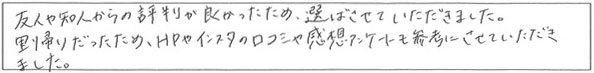 友人や知人からの評判が良かったため、選ばさせていただきました。
里帰りだったため、HPやインスタの口コミや感想アンケートも参考にさせていただき
ました。